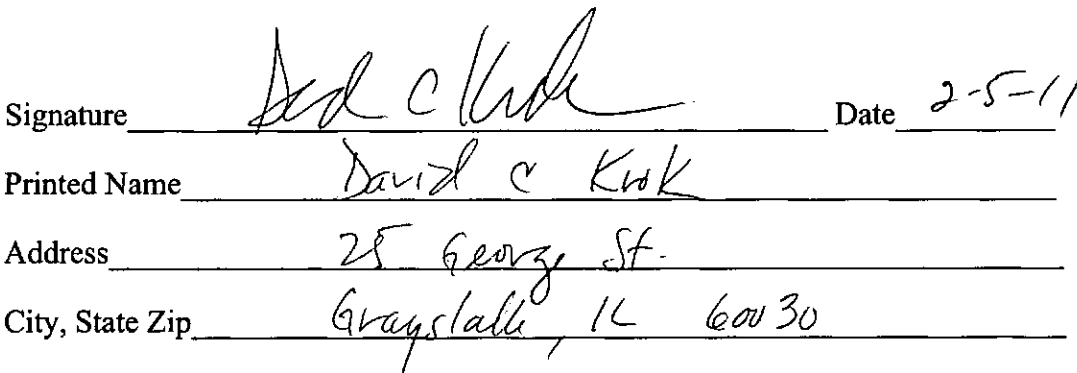 Signature David C Krok Date 2-5-11
Printed Name David C Krok
Address 25 George St.
City, State Zip Grayslake, IL 60030